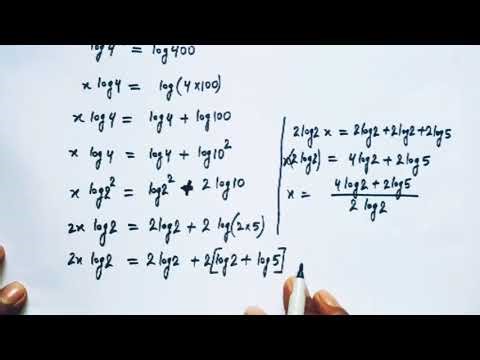 log4 = log400
x log4 = log(4×100)
x log4 = log4 + log100
x log4 = log4 + log10²
x log2² = log2² + 2 log10
2x log2 = 2log2 + 2 log(2×5)
2x log2 = 2log2 + 2[log2 + log5]
2log2 x = 2log2 + 2log2 + 2log5
x(2log2) = 4log2 + 2log5
x = 4log2 + 2log5
2 log2